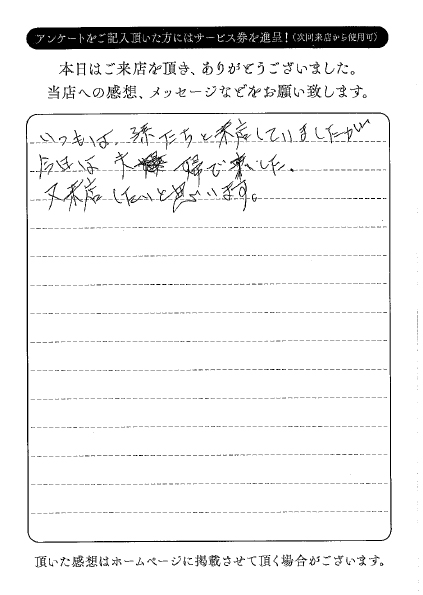 アンケートをご記入頂いた方にはサービス券を進呈!(次回来店から使用可)
本日はご来店を頂き、ありがとうございました。
当店への感想、メッセージなどをお願い致します。
いつもは、孫たちと来店していましたが
今日は 夫婦で来ました。
又来店したいと思います。
頂いた感想はホームページに掲載させて頂く場合がございます。